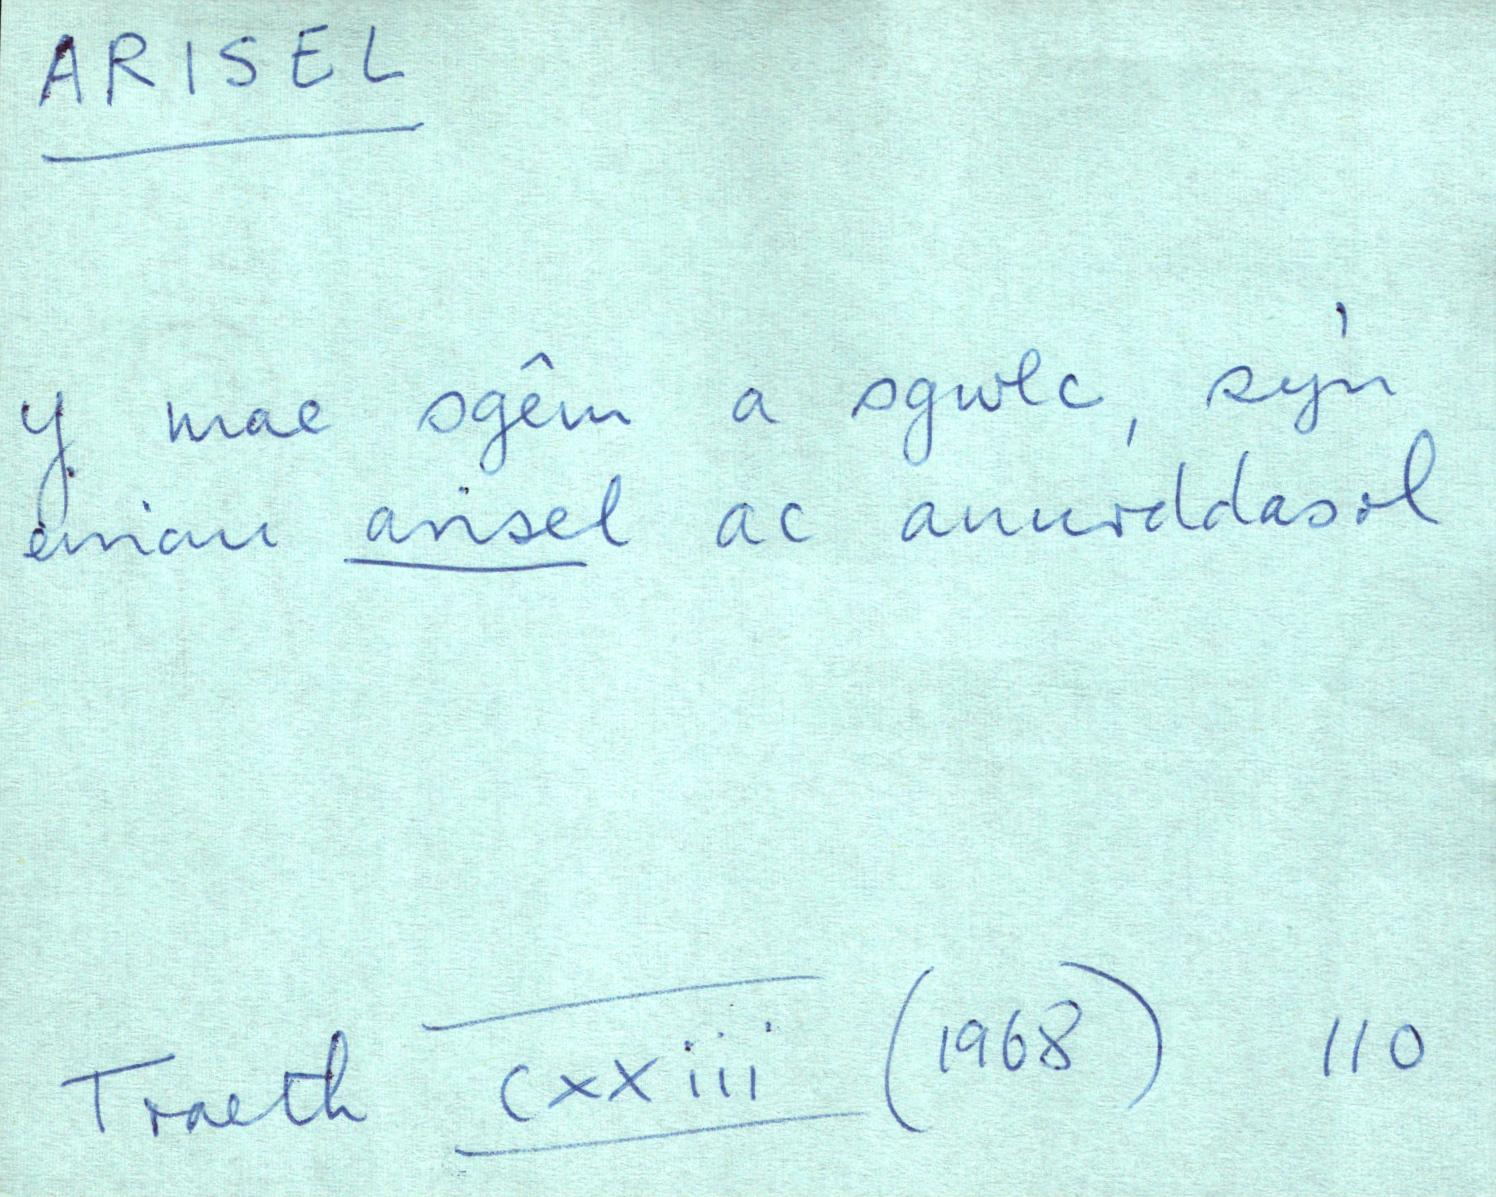 ARISEL
y mae sgêm a sgwlc, sy'n
eiriau arisel ac anurddasol
Traeth cxxiii (1968) 110